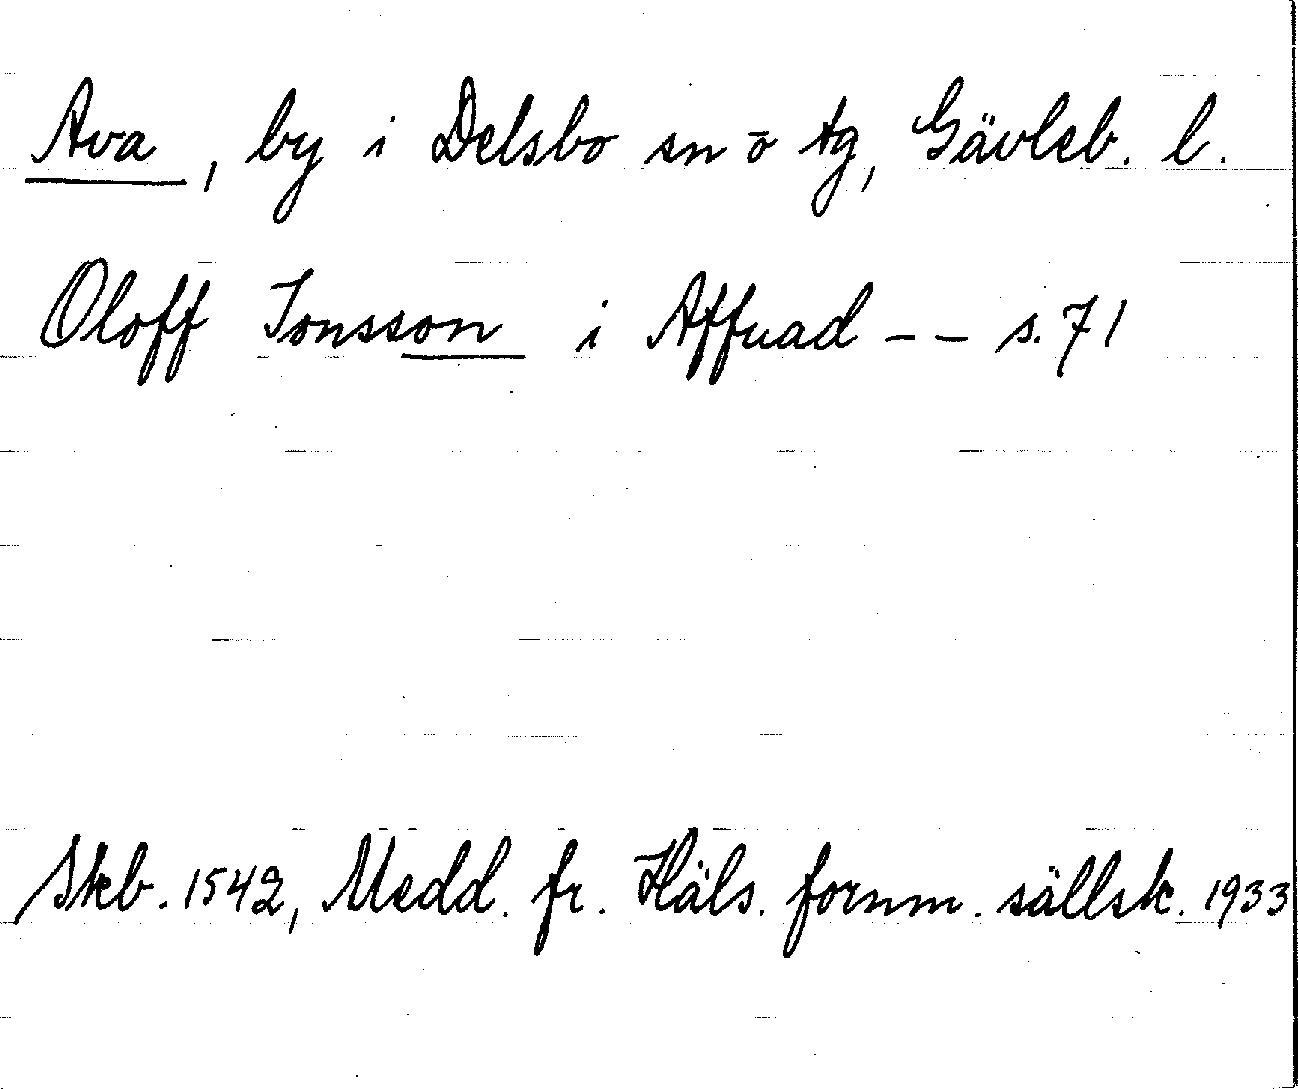 Ava, by i Delsbo sn o tg, Gävleb. l.
Oloff Jonsson i Affuad -- s. 71
Skb. 1542, Medd. fr. Häls. fornm. sällsk. 1933